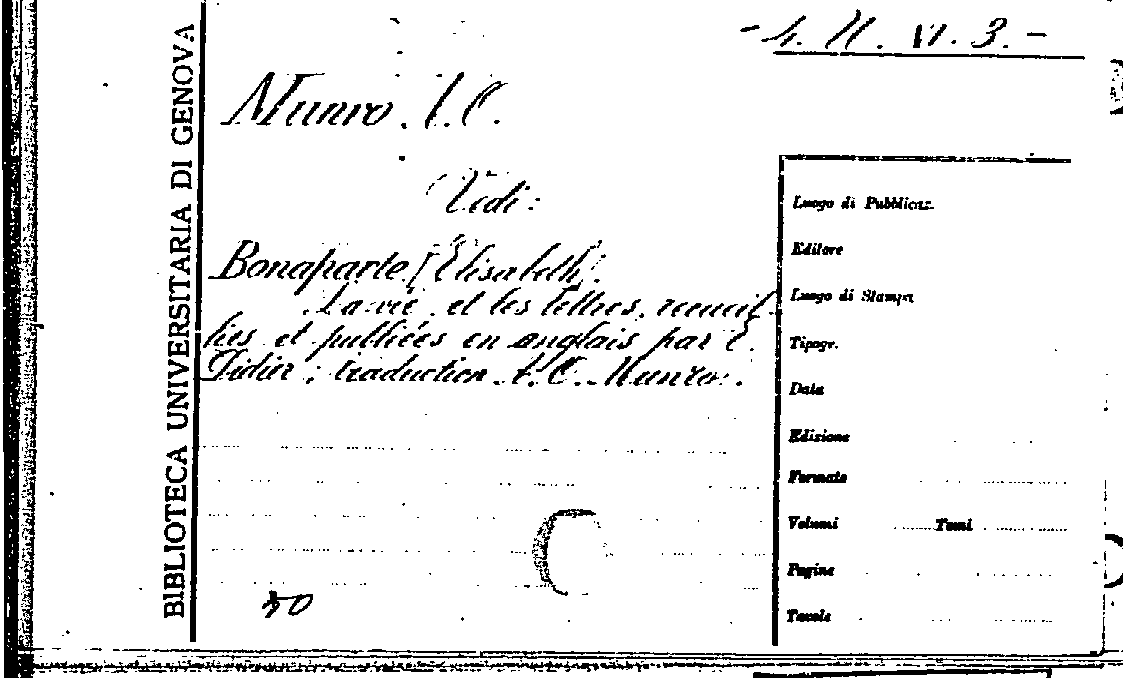 VI. 3. -
Munro
Vedi:
Bonaparte (Elisabeth).
La vie et les lettres, recueil
lies et publiées en anglais par E.
Didier; traduction A. C. Munro.
40
BIBLIOTECA UNIVERSITARIA DI GENOVA
Luogo di Pubblicaz.
Editore
Luogo di Stampa
Tipogr.
Data
Edizione
Formato
Volumi Tomi
Pagine
Tavole